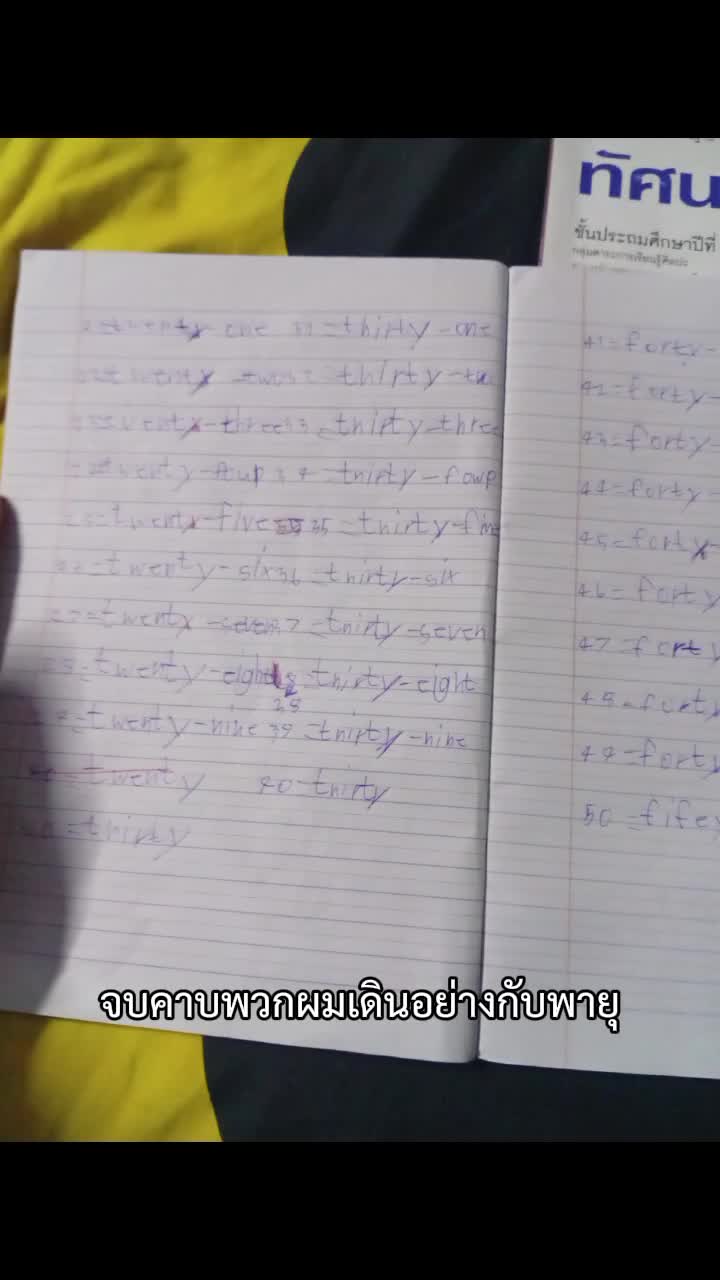 ทัศน
ชั้นประถมศึกษาปีที่
กลุ่มสาระการเรียนรู้ศิลปะ
twenty one 31=thirty-one
twenty thirty-tw
twenty-three 33 =tnirty-three
twenty-foup 34 =tnirty-fowp
=twenty-five 35 =tnirty-fiv
=twenty-six 36 =tnirty-six
=twenty-seven 37 =tnirty-seven
=twenty-eight =tnirty-eight
28
=twenty-nine 39 =tnirty-nine
twenty 40-tnirty
=thirty
41=forty-
42=forty-
43=forty-
44=forty-
45=forty-
46=forty
47=forty
48=forty
49=forty
50=fife
จบคาบพวกผมเดินอย่างกับพายุ